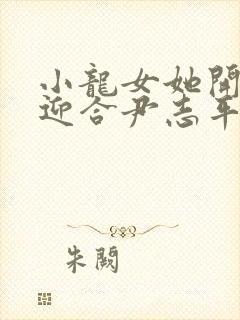 小龍女她開
迎合尹志平
朱閥